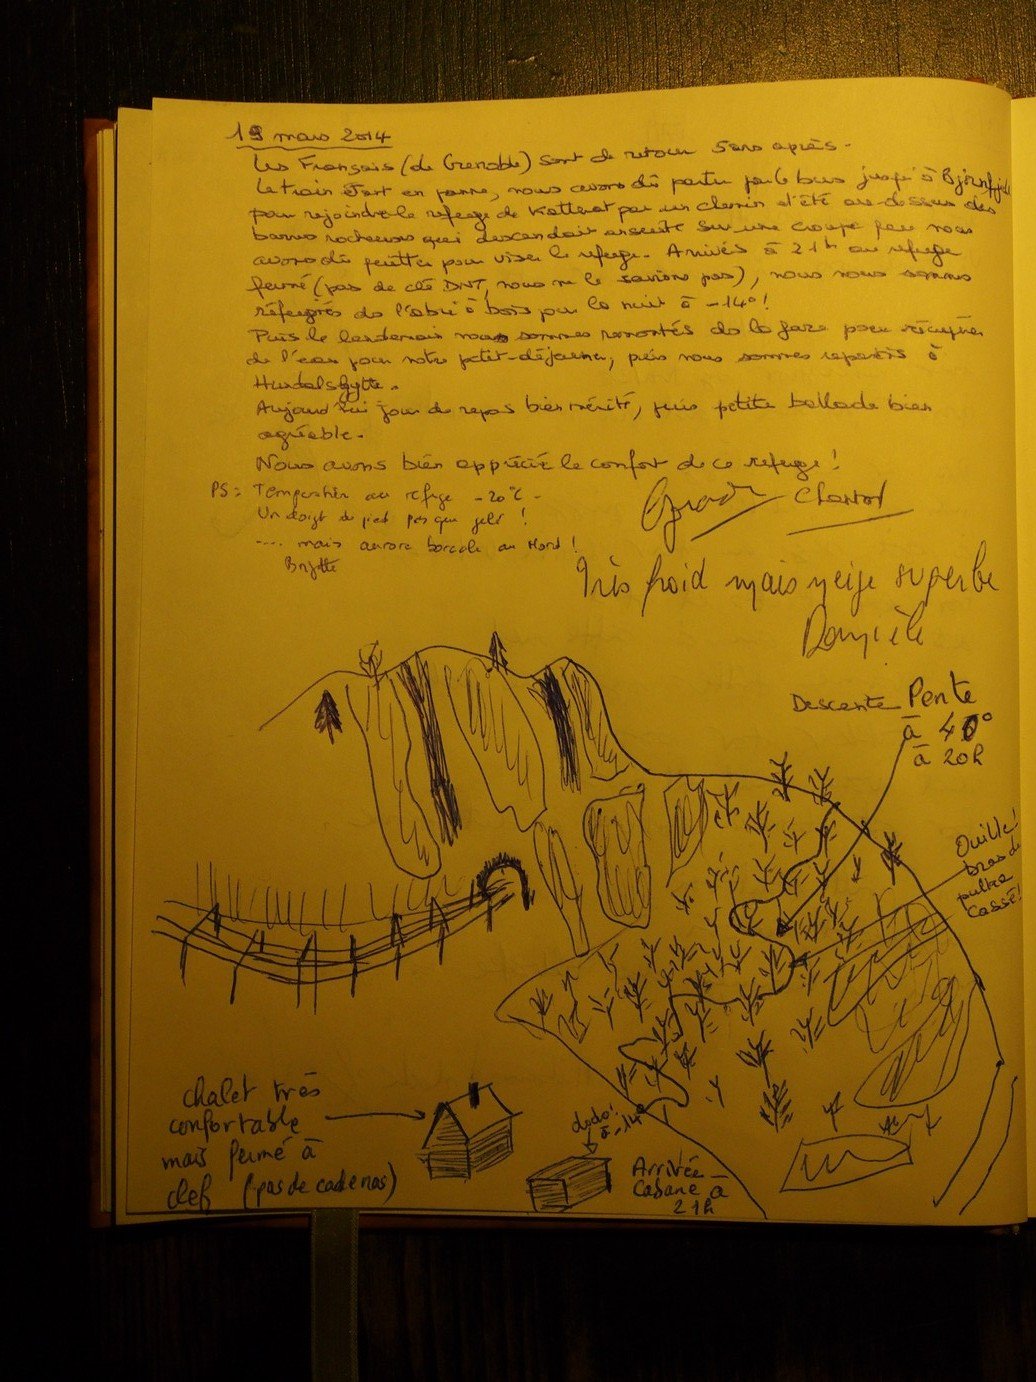 19 mars 2014
Les Français (de Grenoble) sont de retour 5 ans après.
Le train étant en panne, nous avons dû partir par le bus jusqu'à Björnfjell
pour rejoindre le refuge de Katterat par un chemin d'été au-dessus des
barres rocheuses qui descendait ensuite sur une croupe que nous
avons dû quitter pour viser le refuge. Arrivés à 21h au refuge
fermé (pas de clé DNT, nous ne le savions pas), nous nous sommes
réfugiés ds l'abri à bois pour la nuit à -14°!
Puis le lendemain nous sommes remontés ds la face pour récupérer
de l'eau pour notre petit-déjeuner, puis nous sommes repartis à
Hundalshytte.
Aujourd'hui jour de repos bien mérité, puis petite ballade bien
agréable.
Nous avons bien apprécié le confort de ce refuge!
PS: Température au refuge -20°C -
Un doigt de pied presque gelé!
.... mais aurore boréale au Nord!
Brigitte
Très froid mais neige superbe
Danièle
Descente Pente
à 40°
à 20h
Ouille!
bras de
pulka
Cassé!
chalet très
confortable
mais fermé à
clef (pas de cadenas)
dodo!
à -14°
Arrivée
Cabane à
21h